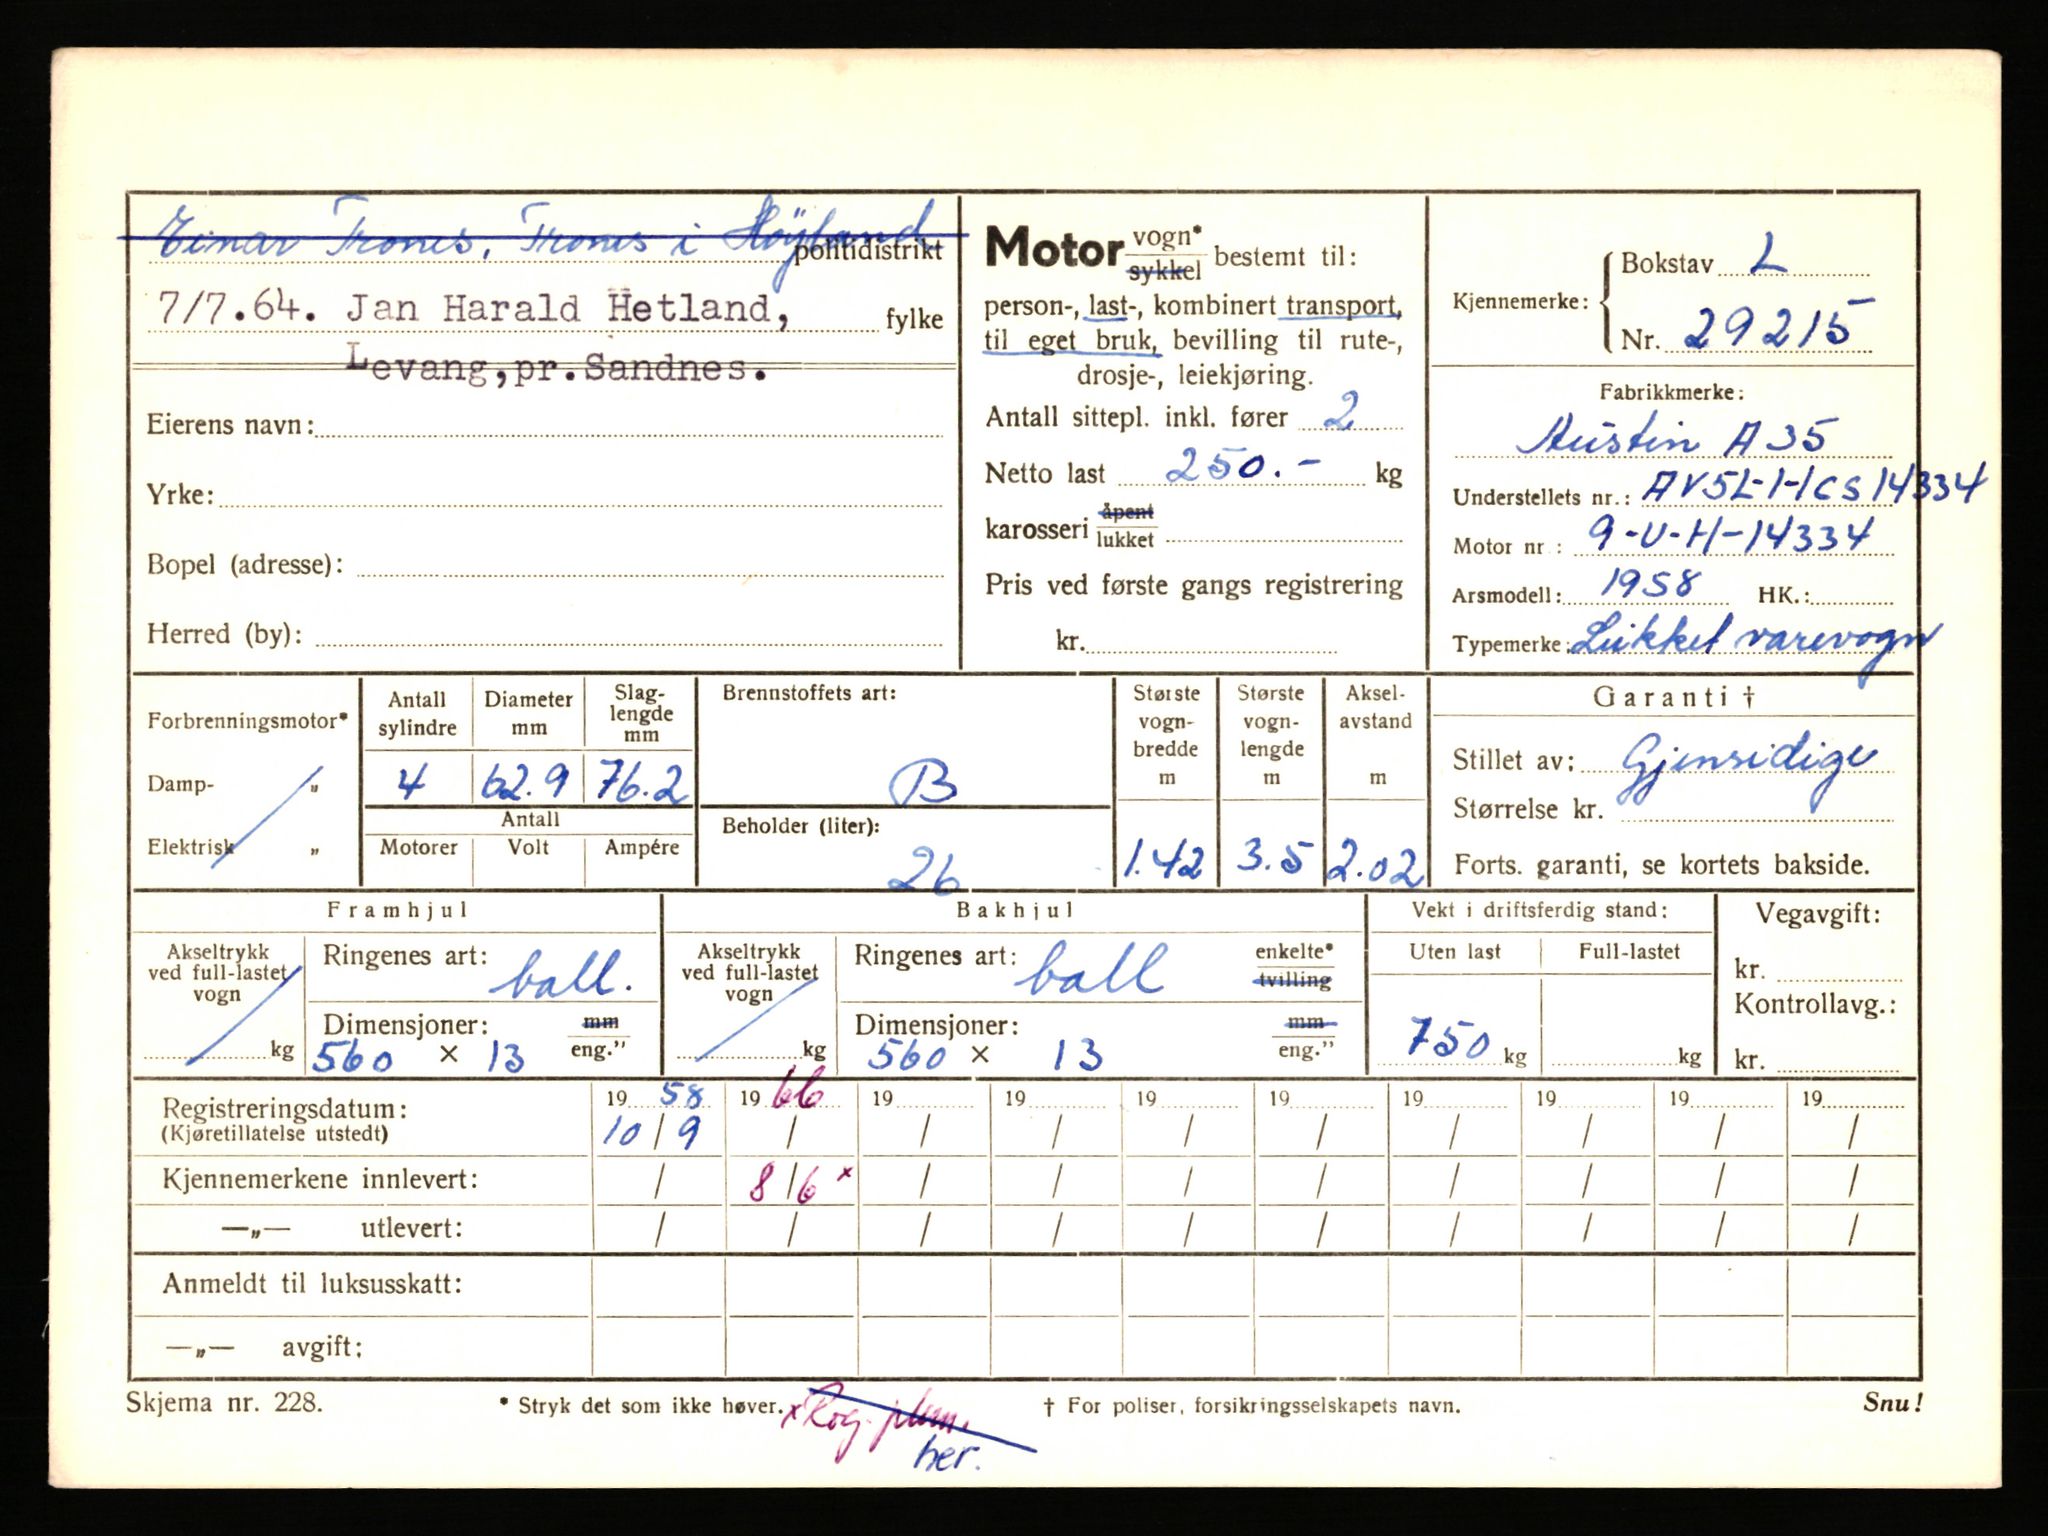 Einar Trones, Trones i Höyland
politidistrikt
7/7.64. Jan Harald Hetland, fylke
Levang,pr.Sandnes.
Eierens navn:
Yrke:
Bopel (adresse):
Herred (by):
Motor vogn* sykkel bestemt til:
person-, last-, kombinert transport,
til eget bruk, bevilling til rute-,
drosje-, leiekjøring.
Antall sittepl. inkl. fører 2
Netto last 250.- kg
karosseri åpent lukket
Pris ved første gangs registrering
kr.
Kjennemerke: Bokstav L
Nr. 29215
Fabrikkmerke:
Austin A 35
Understellets nr.: AV5L-H-CS 14334
Motor nr.: 9-U-H-14334
Arsmodell: 1958 HK.:
Typemerke: Lukket varevogn
Forbrenningsmotor*
Damp- „
Elektrisk „
Antall sylindre
Diameter mm
Slag-lengde mm
4 62.9 76.2
Antall
Motorer Volt Ampére
Brennstoffets art:
B
Beholder (liter):
26
Største vogn-bredde m
1.42
Største vogn-lengde m
3.5
Aksel-avstand m
2.02
Garanti †
Stillet av: Gjensidige
Størrelse kr.
Forts. garanti, se kortets bakside.
Framhjul
Akseltrykk ved full-lastet vogn
kg
Ringenes art: ball.
Dimensjoner: mm eng."
560 × 13
Bakhjul
Akseltrykk ved full-lastet vogn
kg
Ringenes art: ball enkelte* tvilling
Dimensjoner: mm eng."
560 × 13
Vekt i driftsferdig stand:
Uten last Full-lastet
750 kg kg
Vegavgift:
kr.
Kontrollavg.:
kr.
Registreringsdatum: 19 58 19 66 19 19 19 19 19 19 19 19
(Kjøretillatelse utstedt) 10/9 / / / / / / / / /
Kjennemerkene innlevert: / 8/6 x / / / / / / / /
—„— utlevert: / / / / / / / / / /
Anmeldt til luksusskatt:
—„— avgift:
Skjema nr. 228. * Stryk det som ikke høver. x Rog. plum. † For poliser, forsikringsselskapets navn. Snu!
her.